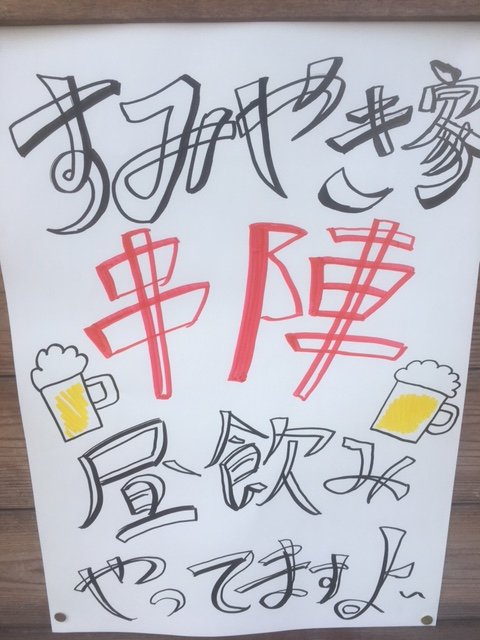 すみやき家
串陣
昼飲み
やってますよ〜